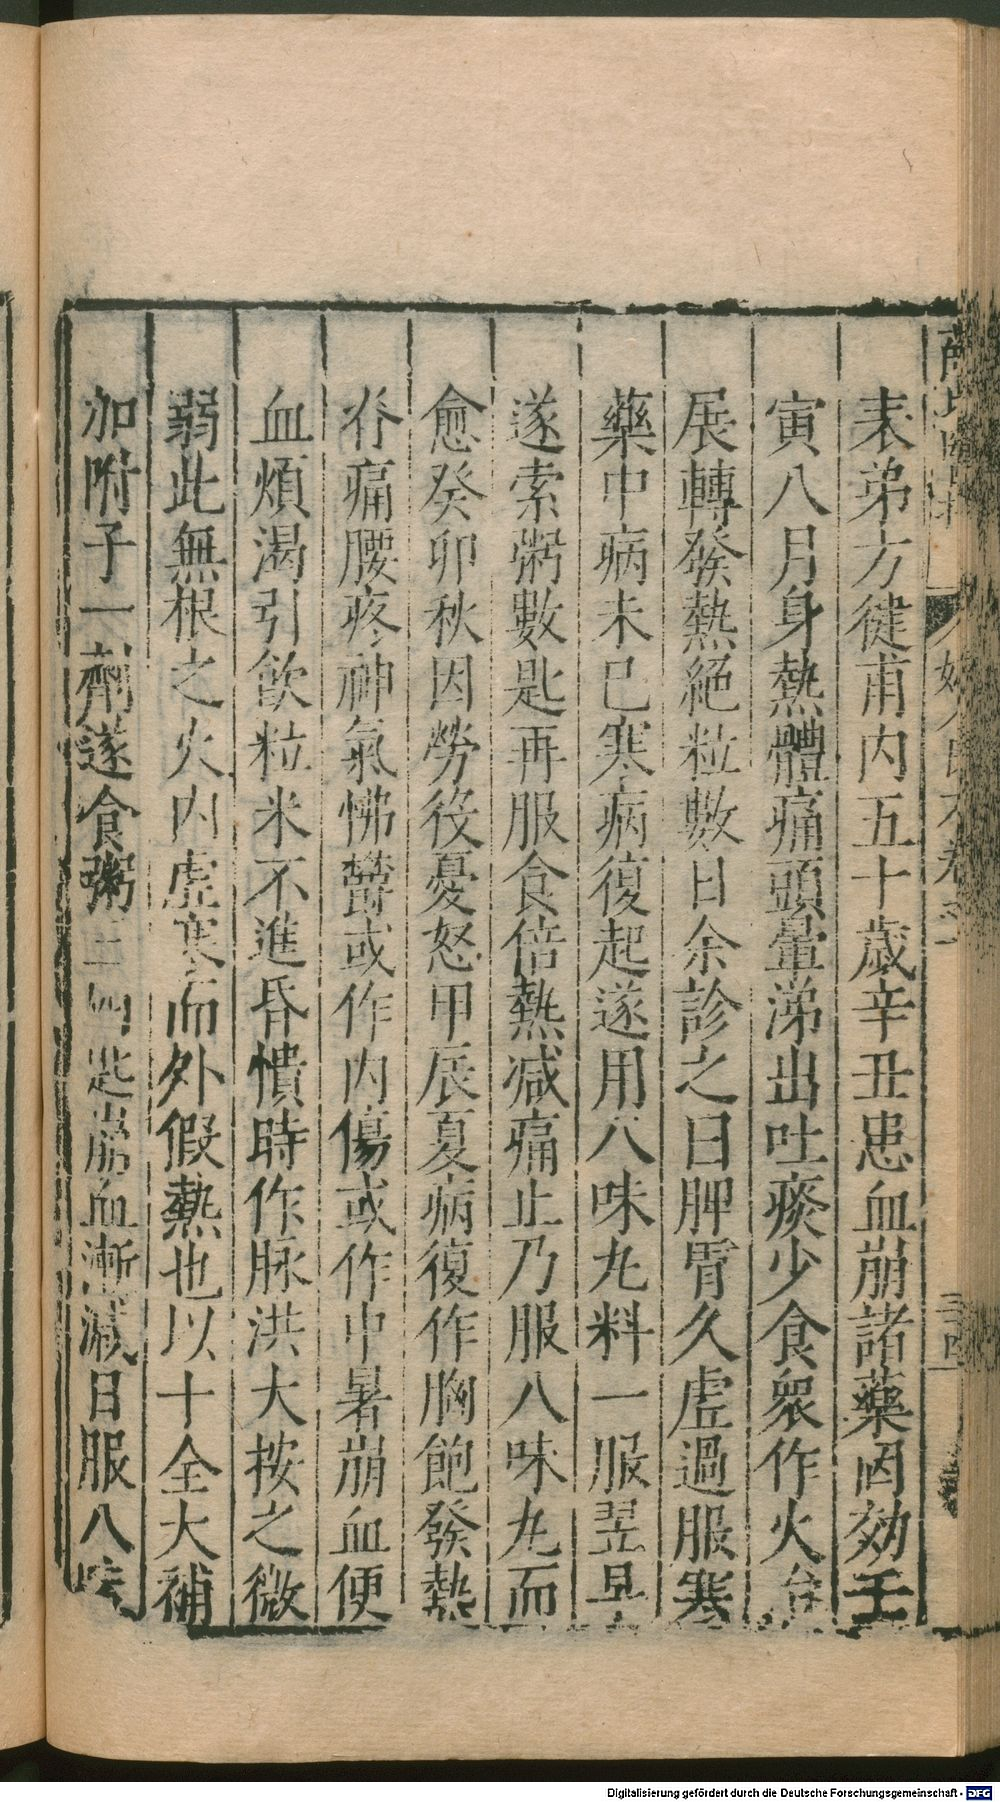 表弟方健甫內五十歲辛丑患血崩諸藥罔效壬
寅八月身熱體痛頭暈涕出吐痰少食衆作火治
展轉發熱絕粒數日余診之曰脾胃久虛過服寒
藥中病未已寒病復起遂用八味丸料一服翌早
遂索粥數匙再服食倍熱减痛止乃服八味丸而
愈癸卯秋因勞役憂怒甲辰夏病復作胸飽發熱
脊痛腰疼神氣怫鬱或作內傷或作中暑崩血便
血煩渴引飲粒米不進昏憒時作脉洪大按之微
弱此無根之火內虛寒而外假熱也以十全大補
加附子一劑遂食粥三四匙崩血漸減日服八味
Digitalisierung gefördert durch die Deutsche Forschungsgemeinschaft - DFG